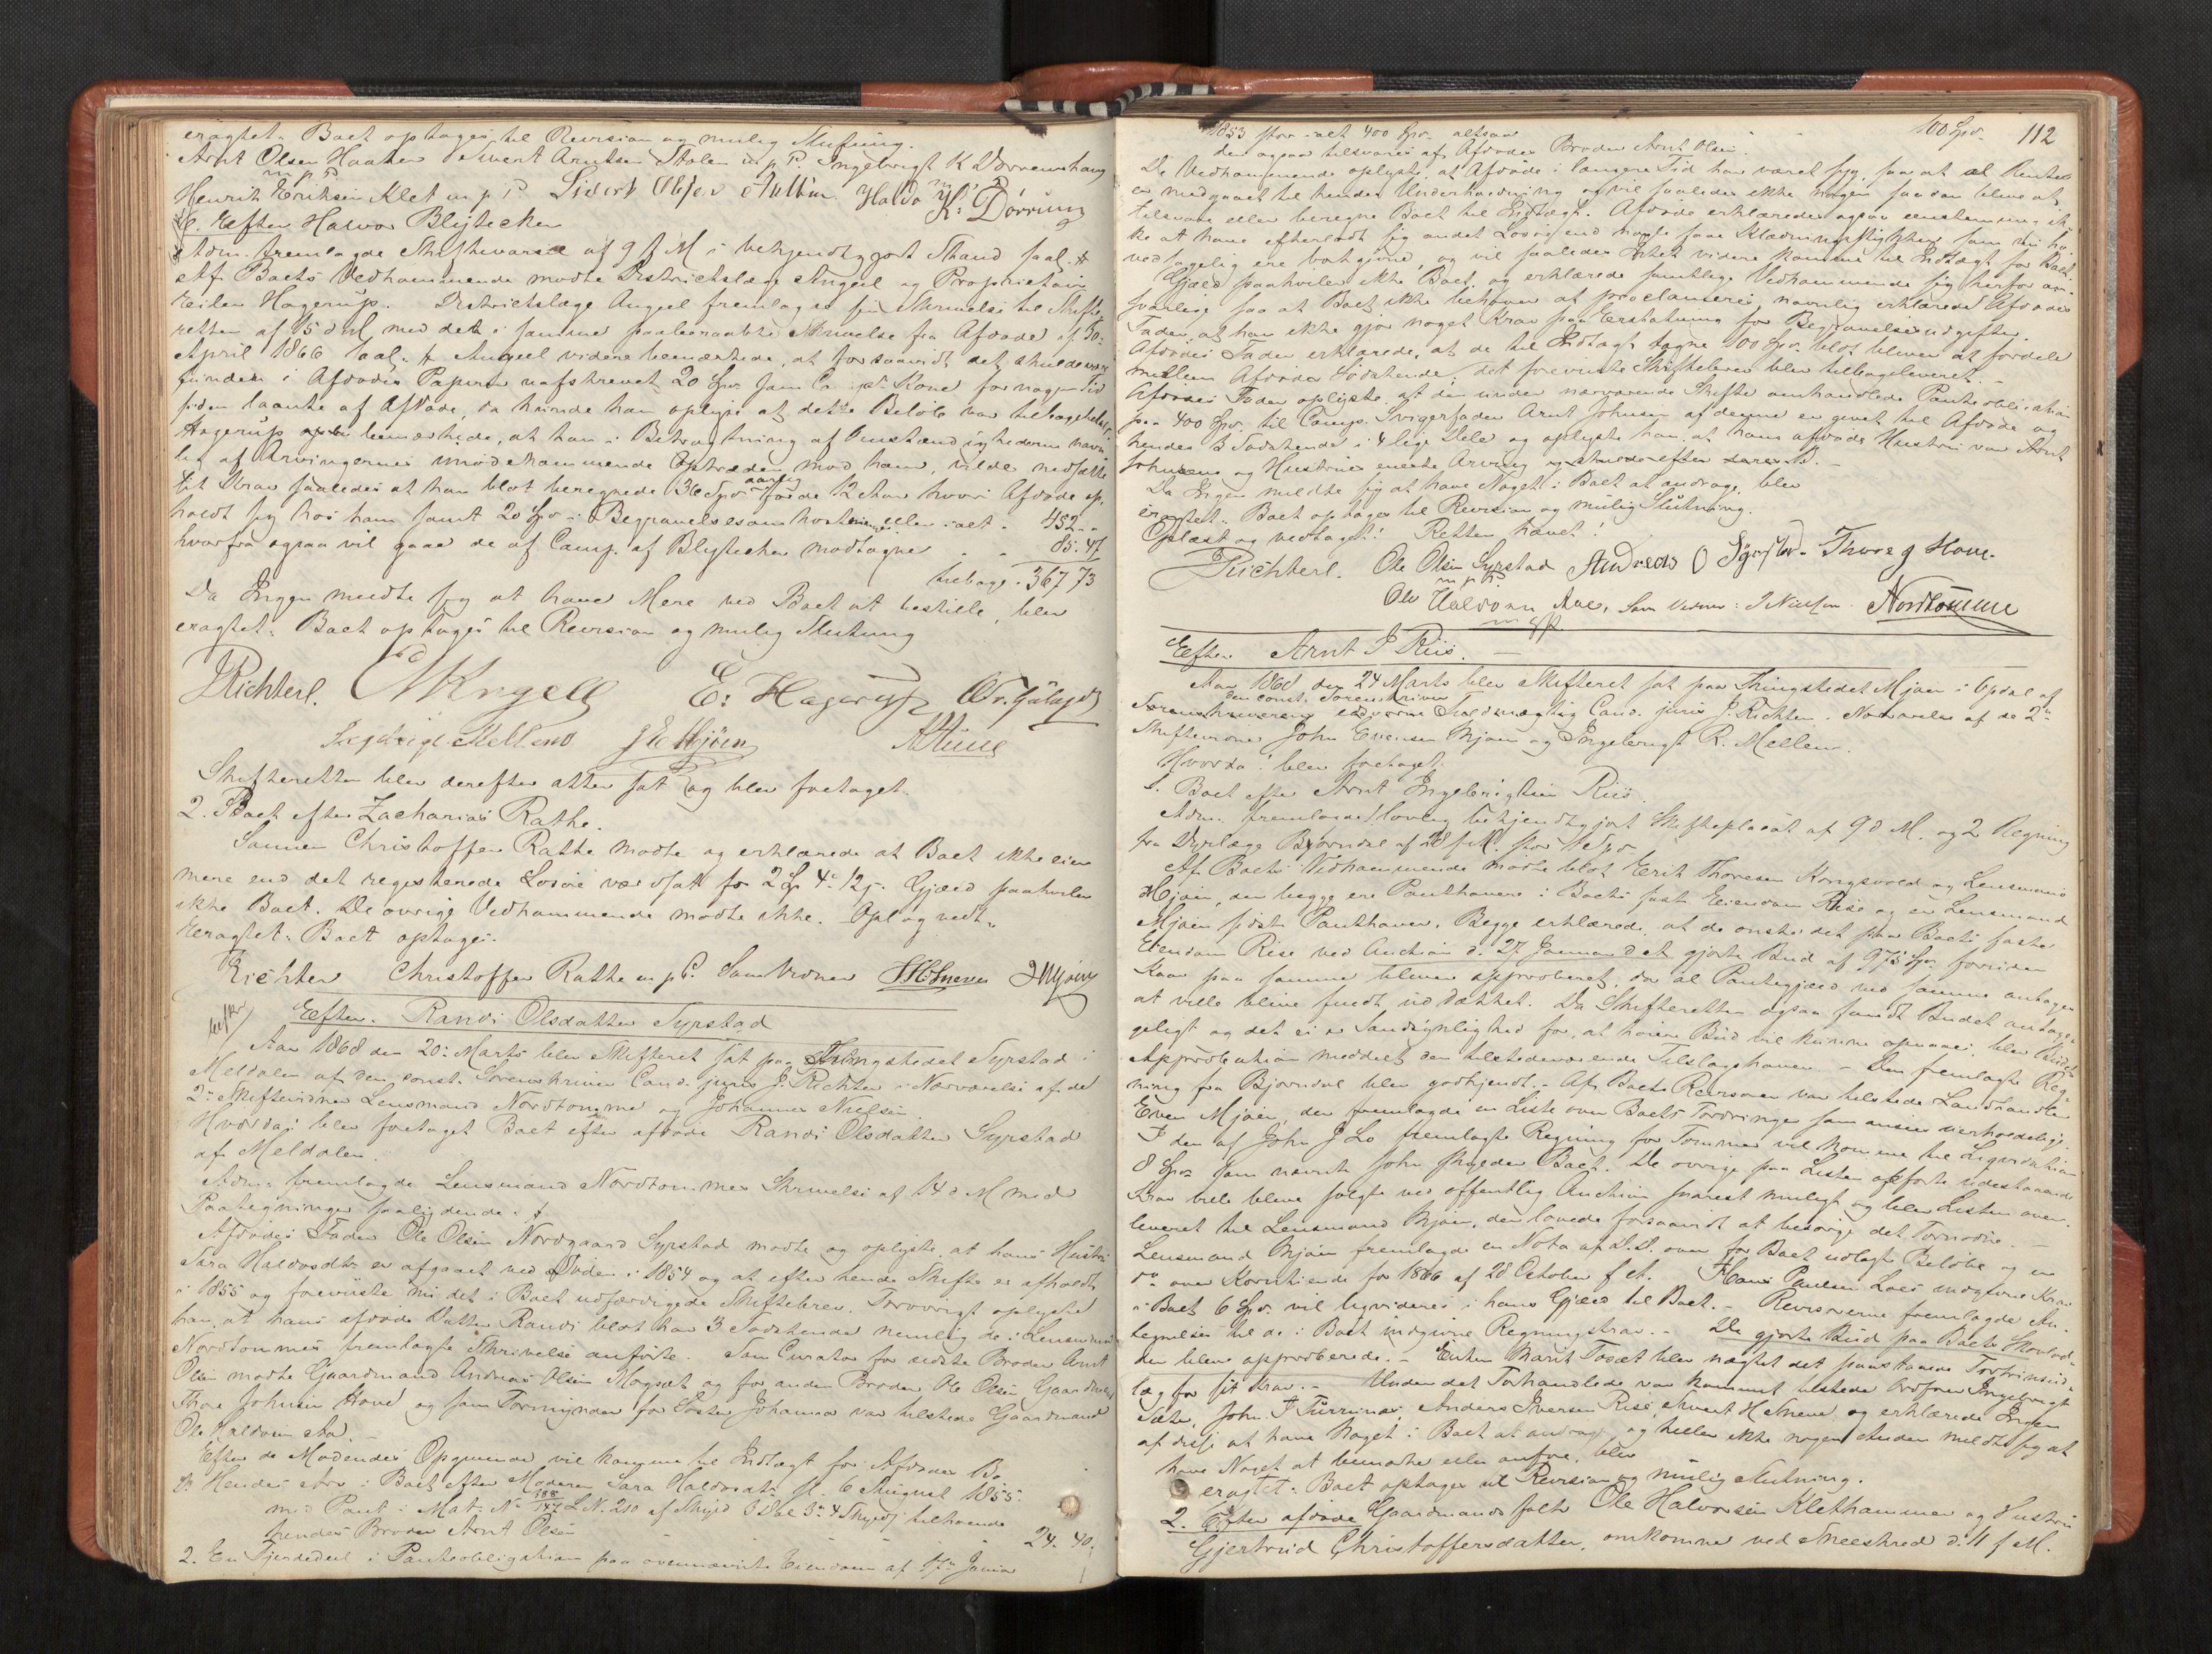 eragtet: Boet optages til Revision og mulig Slutning.
Arnt Olsen Haaker Sivert Arntsen Stølen m. p. P. Ingebrigt K Dørremshaug
m p P
Henrik Eriksen Klet m. p. P Sivert Olsen Aulbu Haldo K: Dørrum
6. Efter Halvor Blijtecker
Adm. fremlagde Skiftevarsel af 9 f M i bekjendtgjort Stand saal. #
Af Boets Vedkommende mødte Districtslæge Angell og Proprietair
Reider Hagerup. Districtslæge Angell fremlagde sin Skrivelse til Skifte-
retten af 15 d M med den i samme paaberaabte Skrivelse fra Afdøde af 30
April 1866 saal. # Angell videre bemærkede, at forsaavidt det skulde være
funden i Afdødes Papirer nafskrevet 20 Spd. som Cr pt. Kone for nogen Tid
siden laante af Afdøde, da kunde han oplyse at dette Beløb var tilbagebetalt.
Hagerup bemærkede, at han i Betragtning af Omstændighederne navn-
lig af Arvingernes imødekommende Optræden mod ham, vilde nedsætte
sit Krav saaledes at han blot beregnede 36 Spd aarlig for de 12 Aar hvori Afdøde op-
holdt sig hos ham samt 20 Spd i Begravelsesomkostninger eller ialt . 452 . .
hvorfra ogsaa vil gaae de af Comp. af Blijtecker modtagne . . 85. 47
tilbage . 367 73
Da Ingen meldte sig at have Mere ved Boet at bestille, blev
eragtet: Boet optages til Revision og mulig Slutning
JRichter. AKngell E: Hagerup
Ingebrigt Mellemo JEMjøen
Skifteretten blev derefter atter sat og blev foretaget.
2. Boet efter Zacharias Rathe.
Sønnen Christoffer Rathe mødte og erklærede at Boet ikke eier
mere end det registerede Løsøre værdsatt for 2 Sp 4 12 s. Gjæld paahviler
ikke Boet. De øvrige Vedkommende mødte ikke. Opl og vedt.
Eragtet: Boet optages.
Richter Christoffer Rathe m. p. P. Som Vidner
Efter Randi Olsdatter Syrstad
Aar 1868 den 20. Marts blev Skifteret sat paa Thingstedet Syrstad i
Meldalen af den const. Sorenskriver Cand. juris J. Richter i Nærværelse af de
2de Skiftevidner Lensmand Nordtømme og Johannes Nielsen.
Hvorda: blev foretaget Boet efter afdøde Randi Olsdatter Syrstad
af Meldalen.
Adm. fremlagde Lensmand Nordtømmes Skrivelse af 14 d M med
Paategninger saalydende. #
Afdødes Fader Ole Olsen Nordgaard Syrstad mødte og oplyste at hans Hustru
Sara Haldosdtr er afgaaet ved Døden i 1854 og at efter hende Skifte er afholdt
i 1855 og foreviiste nu det i Boet udfærdigede Skiftebrev. Forøvrigt oplyste
han, at hans afdøde Datter Randi blot har 3 Sødskende nemlig de i Lensmand
Nordtømmes fremlagte Skrivelse anførte. Som Curator for ældste Broder Arnt
Olsen mødte Gaardmand Andreas Olsen Kogsæt og for anden Broder Ole Olsen Gaardmand
Thore Johnsen Hove og som Formynder for Søster Johanna var tilstede Gaardmand
Ole Haldorsen Aa.
Efter de Mødendes Opgivende vil komme til Indtægt for Afdødes Bo
1. Hendes Arv i Boet efter Moderen Sara Haldosdtr sl. 6 August 1855.
med Pant i Mat. No 147 L No 210 af Skyld 3 Dal 3 4 Skyld tilhørende
hendes Broder Arnt Olsen . . 24. 40.
2. En Fjerdedeel i Panteobligation paa ovennævnte Eiendom af Januar
112
1853 stor ialt 400 Spd. altsaa 100 Spd.
der ogsaa tilsvares af Afdødes Broder Arnt Olsen.
De Vedkommende oplyste, at Afdøde i længere Tid har været syg, saa at al Renter
er medgaaet til hendes Underholdning og vil saaledes ikke nogen saadan blive at
tilsvare eller beregne Boet til Indtægt. Afdøde erklæredes ogsaa eenstemmig ik-
ke at have efterladt sig andet Løsøre end nogle faa Klædningsstykker som nu ho-
vedsagelig ere bortgivne, og vil saaledes Intet videre komme til Indtægt for Boet.
Gjæld paahviler ikke Boet, og erklærede samtlige Vedkommende sig herfor an-
svarlige saa at Boet ikke behøver at proclameres, navnlig erklærede Afdødes
Fader, at han ikke gjør noget Krav paa Erstatning for Begravelsesudgifter.
Afdødes Fader erklærede, at de til Indtægt tagne 100 Spd. blot bliver at fordele
mellem Afdødes Sødskende, det foreviste Skiftebrev blev tilbageleveret. -
Afdødes Fader oplyste, at den under nærværende Skifte omhandlede Panteobligation
paa 400 Spd. til Comp. Svigerfader Arnt Johnsen af denne er givet til Afdøde og
hendes 3 Sødskende i 4 lige Dele og oplyste han, at hans afdøde Hustru var Arnt
Johnsens og Hustrues eneste Arving
Da Ingen meldte sig at have Noget i Boet at andrage, blev
eragtet: Boet optages til Revision og mulig Slutning.
Oplæst og vedtaget! Retten hævet!
JRichter. Ole Olsen Syrstad Andreas O Thore J Hove
m p P
Ole Haldorsen Aae, Som Vidner: J Nielsen. Nordtømme
Efter Arnt I Riis.
Aar 1868 den 24 Marts blev Skifteret sat paa Thingstedet Mjøen i Opdal af
den const. Sorenskriver
Fuldmægtig Cand. juris J. Richter. Nærværelse af de 2de
Skiftevidner John Evensen Mjøen og Ingebrigt R. Mellem.
Hvorda! blev foretaget:
1. Boet efter Arnt Ingebrigtsen Riis.
Adm. fremlagde lovlig bekjendtgjort Skifteplacat af 9 d M. og 2 Regning
fra Dyrlæge Bjørndal af 28 f M. stor
Af Boets Vedkommende mødte blot Erik Thoresen Kongsvold og Lensmand
Mjøen, der begge ere Panthavere i Boets faste Eiendom Rise og er Lensmand
Mjøen sidste Panthaver. Begge erklærede, at de ønske det paa Boets faste
Eiendom Rise ved Auction d. 27 Januar d A gjorte Bud af 975 Spd. foruden
Kaar paa samme bliver approberet, da al Pantegjæld ved samme antages
at ville blive fuldt ud dækket. Da Skifteretten ogsaa fandt Budet antage-
geligt og det ei er Sandsynlighed for, at høiere Bud vil kunne opnaaes, blev Budets
Approbation meddeelt den tilstedeværende Tilslagshaver. - Den fremlagte Reg-
ning fra Bjørndal blev godkjendt. - Af Boets Revisorer var tilstede Landhandler
Even Mjøen, der fremlagde en Liste over Boets Fordringer som ansees uerholdelige.
I den af John J Lo fremlagte Regning for Tømmer vil komme til Liquidation
8 Spd. som nævnte John skylder Boet. De øvrige paa Listen opførte udestaaende
Krav vil blive solgte ved offentlig Auction snarest muligt og blev Listen over-
leveret til Lensmand Mjøen, der lovede forsaavidt at besørge det Fornødne. -
Lensmand Mjøen fremlagde en Nota af D.D. over for Boet udlagte Beløbe og en
do over Korntiende for 1866 af 28 October f A. Hans Paulsen Loes indgivne Krav
i Boet 6 Spd. vil liqvideres i hans Gjæld til Boet. - Revisorerne fremlagde An-
tegnelser til de i Boet indgivne Regningskrav. - De gjorte Bud paa Boets Skovlod-
der blev approberede. - Enken Marit Tosæt blev nægtet det paastaaede Fortrinsud-
læg for sit Krav. - Under det Forhandlede var kommet tilstede Ordfører Ingebrigt
Sæter, John I Furrunæs, Anders Iversen Rise, Sivert H Snøve og erklærede Ingen
af disse at have Noget i Boet at andrage, og heller ikke nogen Anden meldte sig at
have Noget at bemærke eller anføre, blev
eragtet: Boet optages til Revision og mulig Slutning.
2. Efter afdøde Gaardmandsfolk Ole Halvorsen Klethammer og Hustru
Gjertrud Christoffersdatter, omkomne ved Sneeskred d. 11 f M.